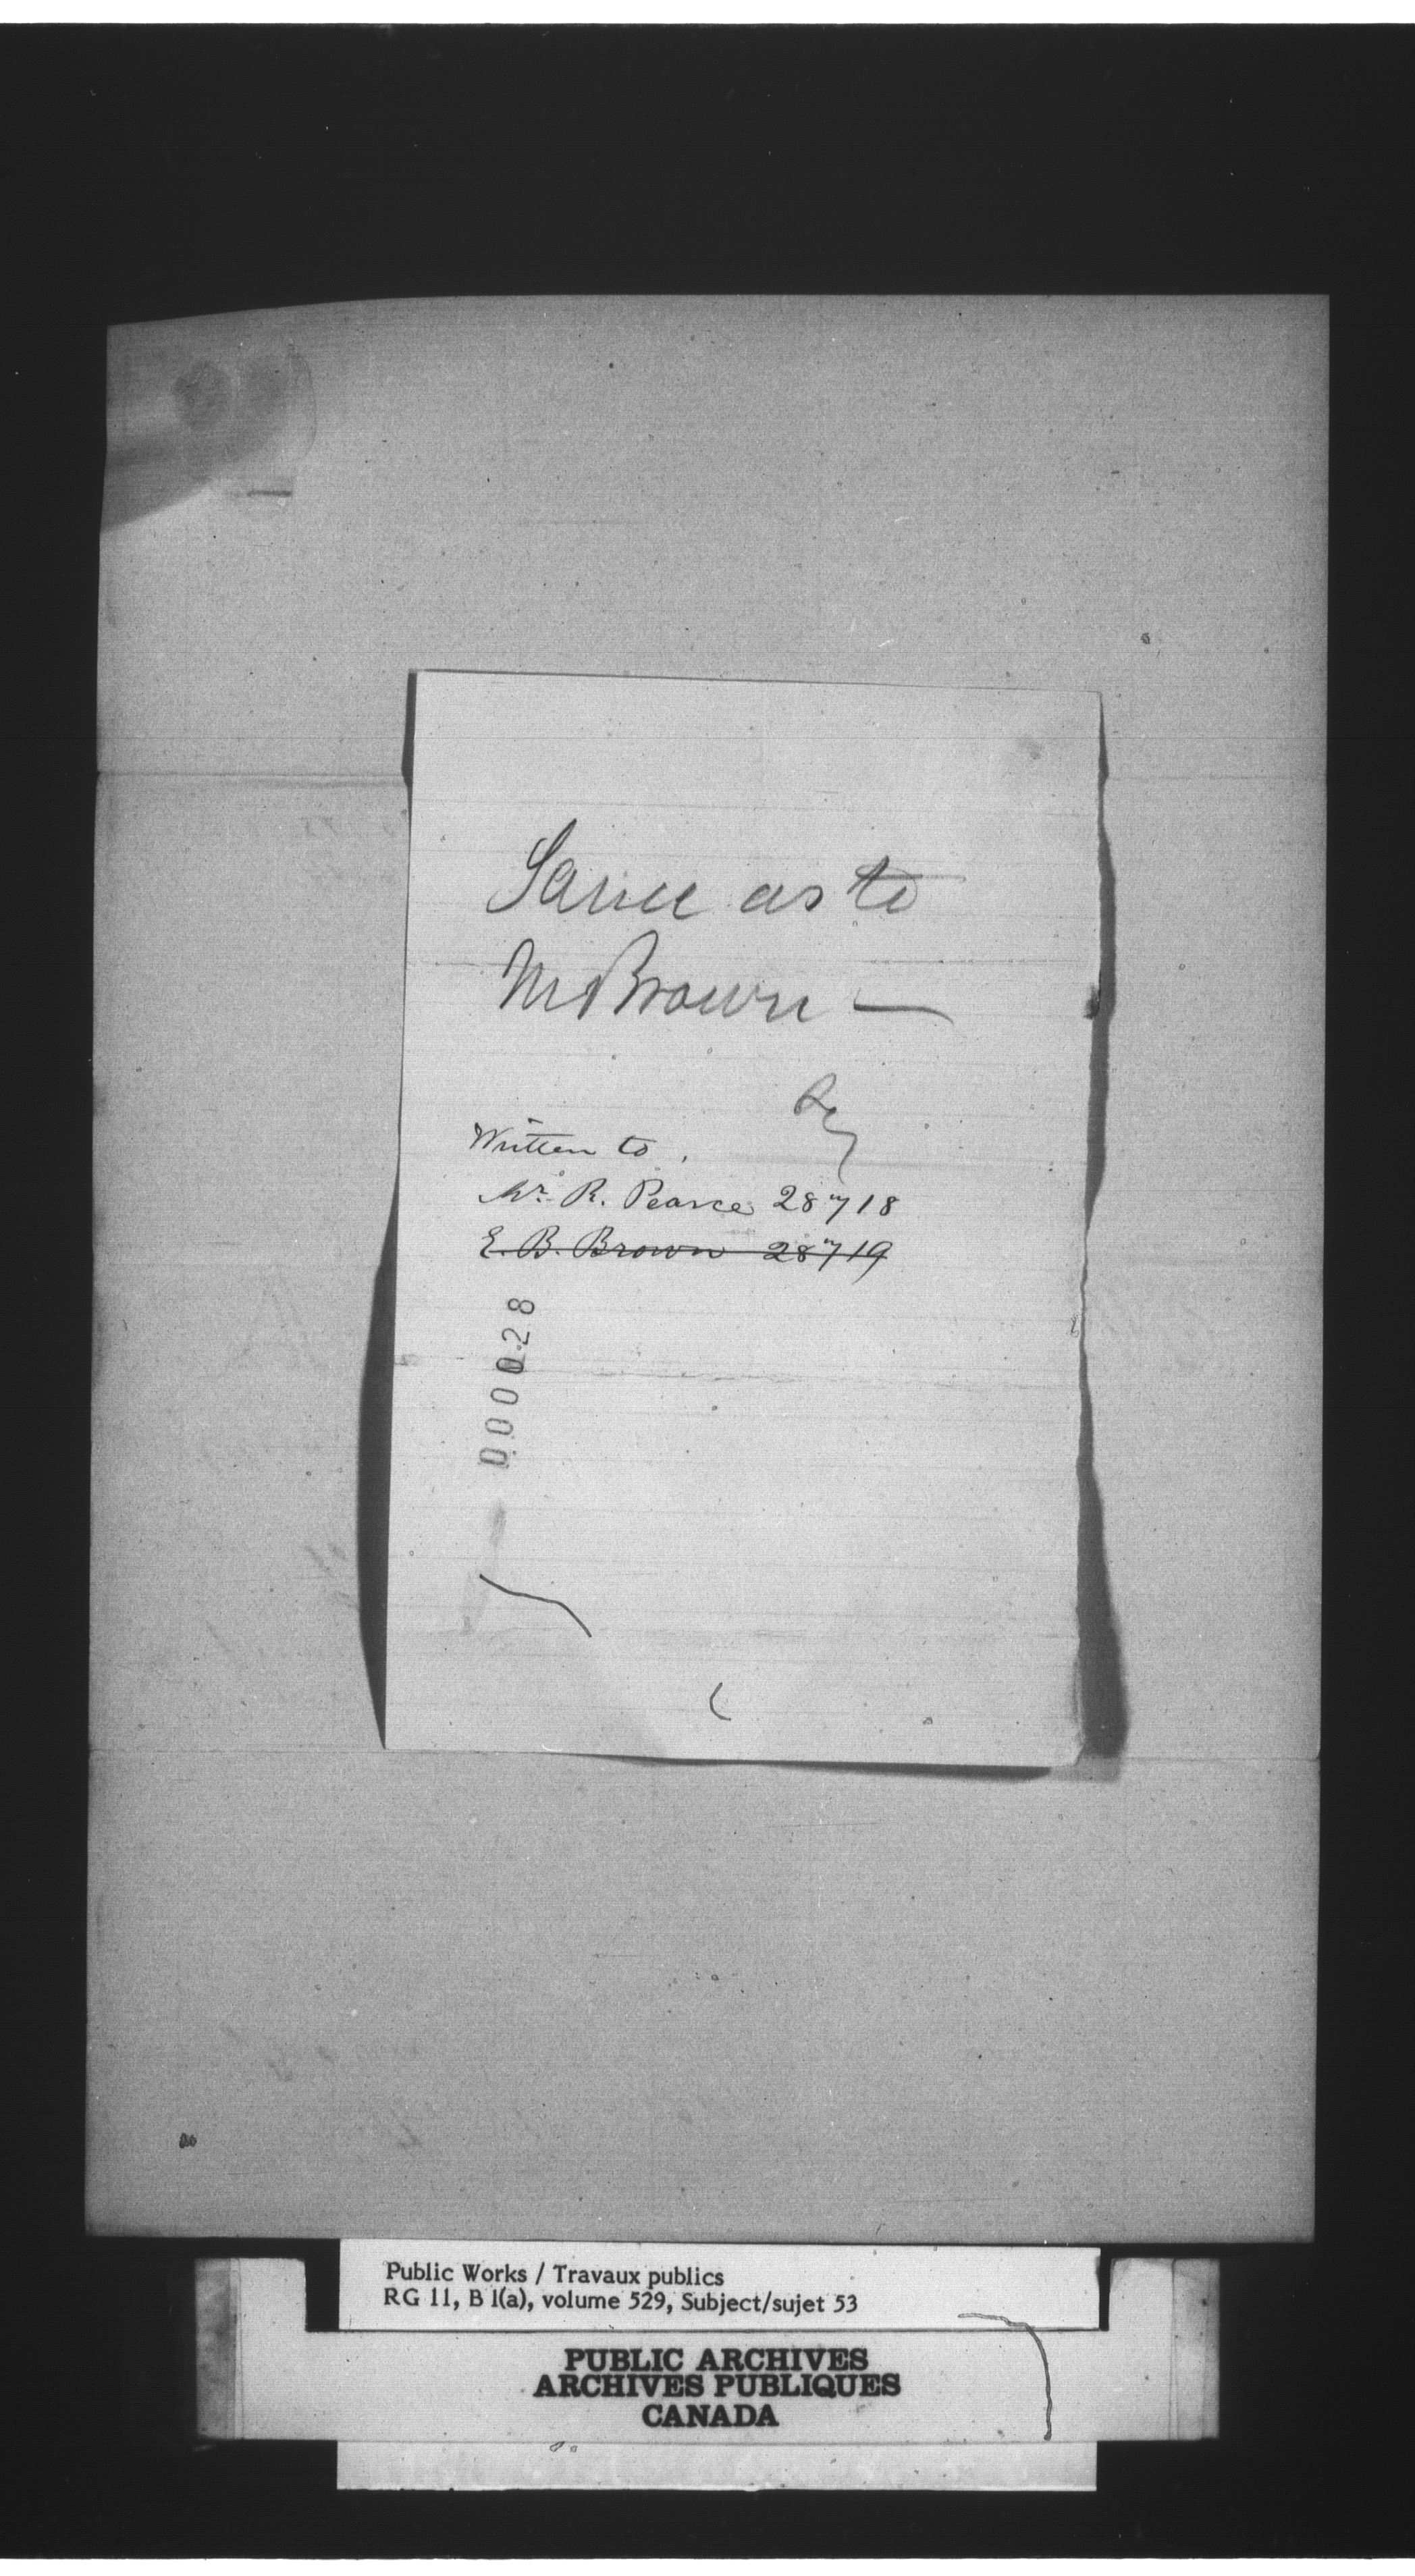 Same as to
Mr Brown —
Written to.
Mr. R. Pearce 28718
E. B. Brown 28719
000028
Public Works / Travaux publics
RG 11, B 1(a), volume 529, Subject/sujet 53
PUBLIC ARCHIVES
ARCHIVES PUBLIQUES
CANADA